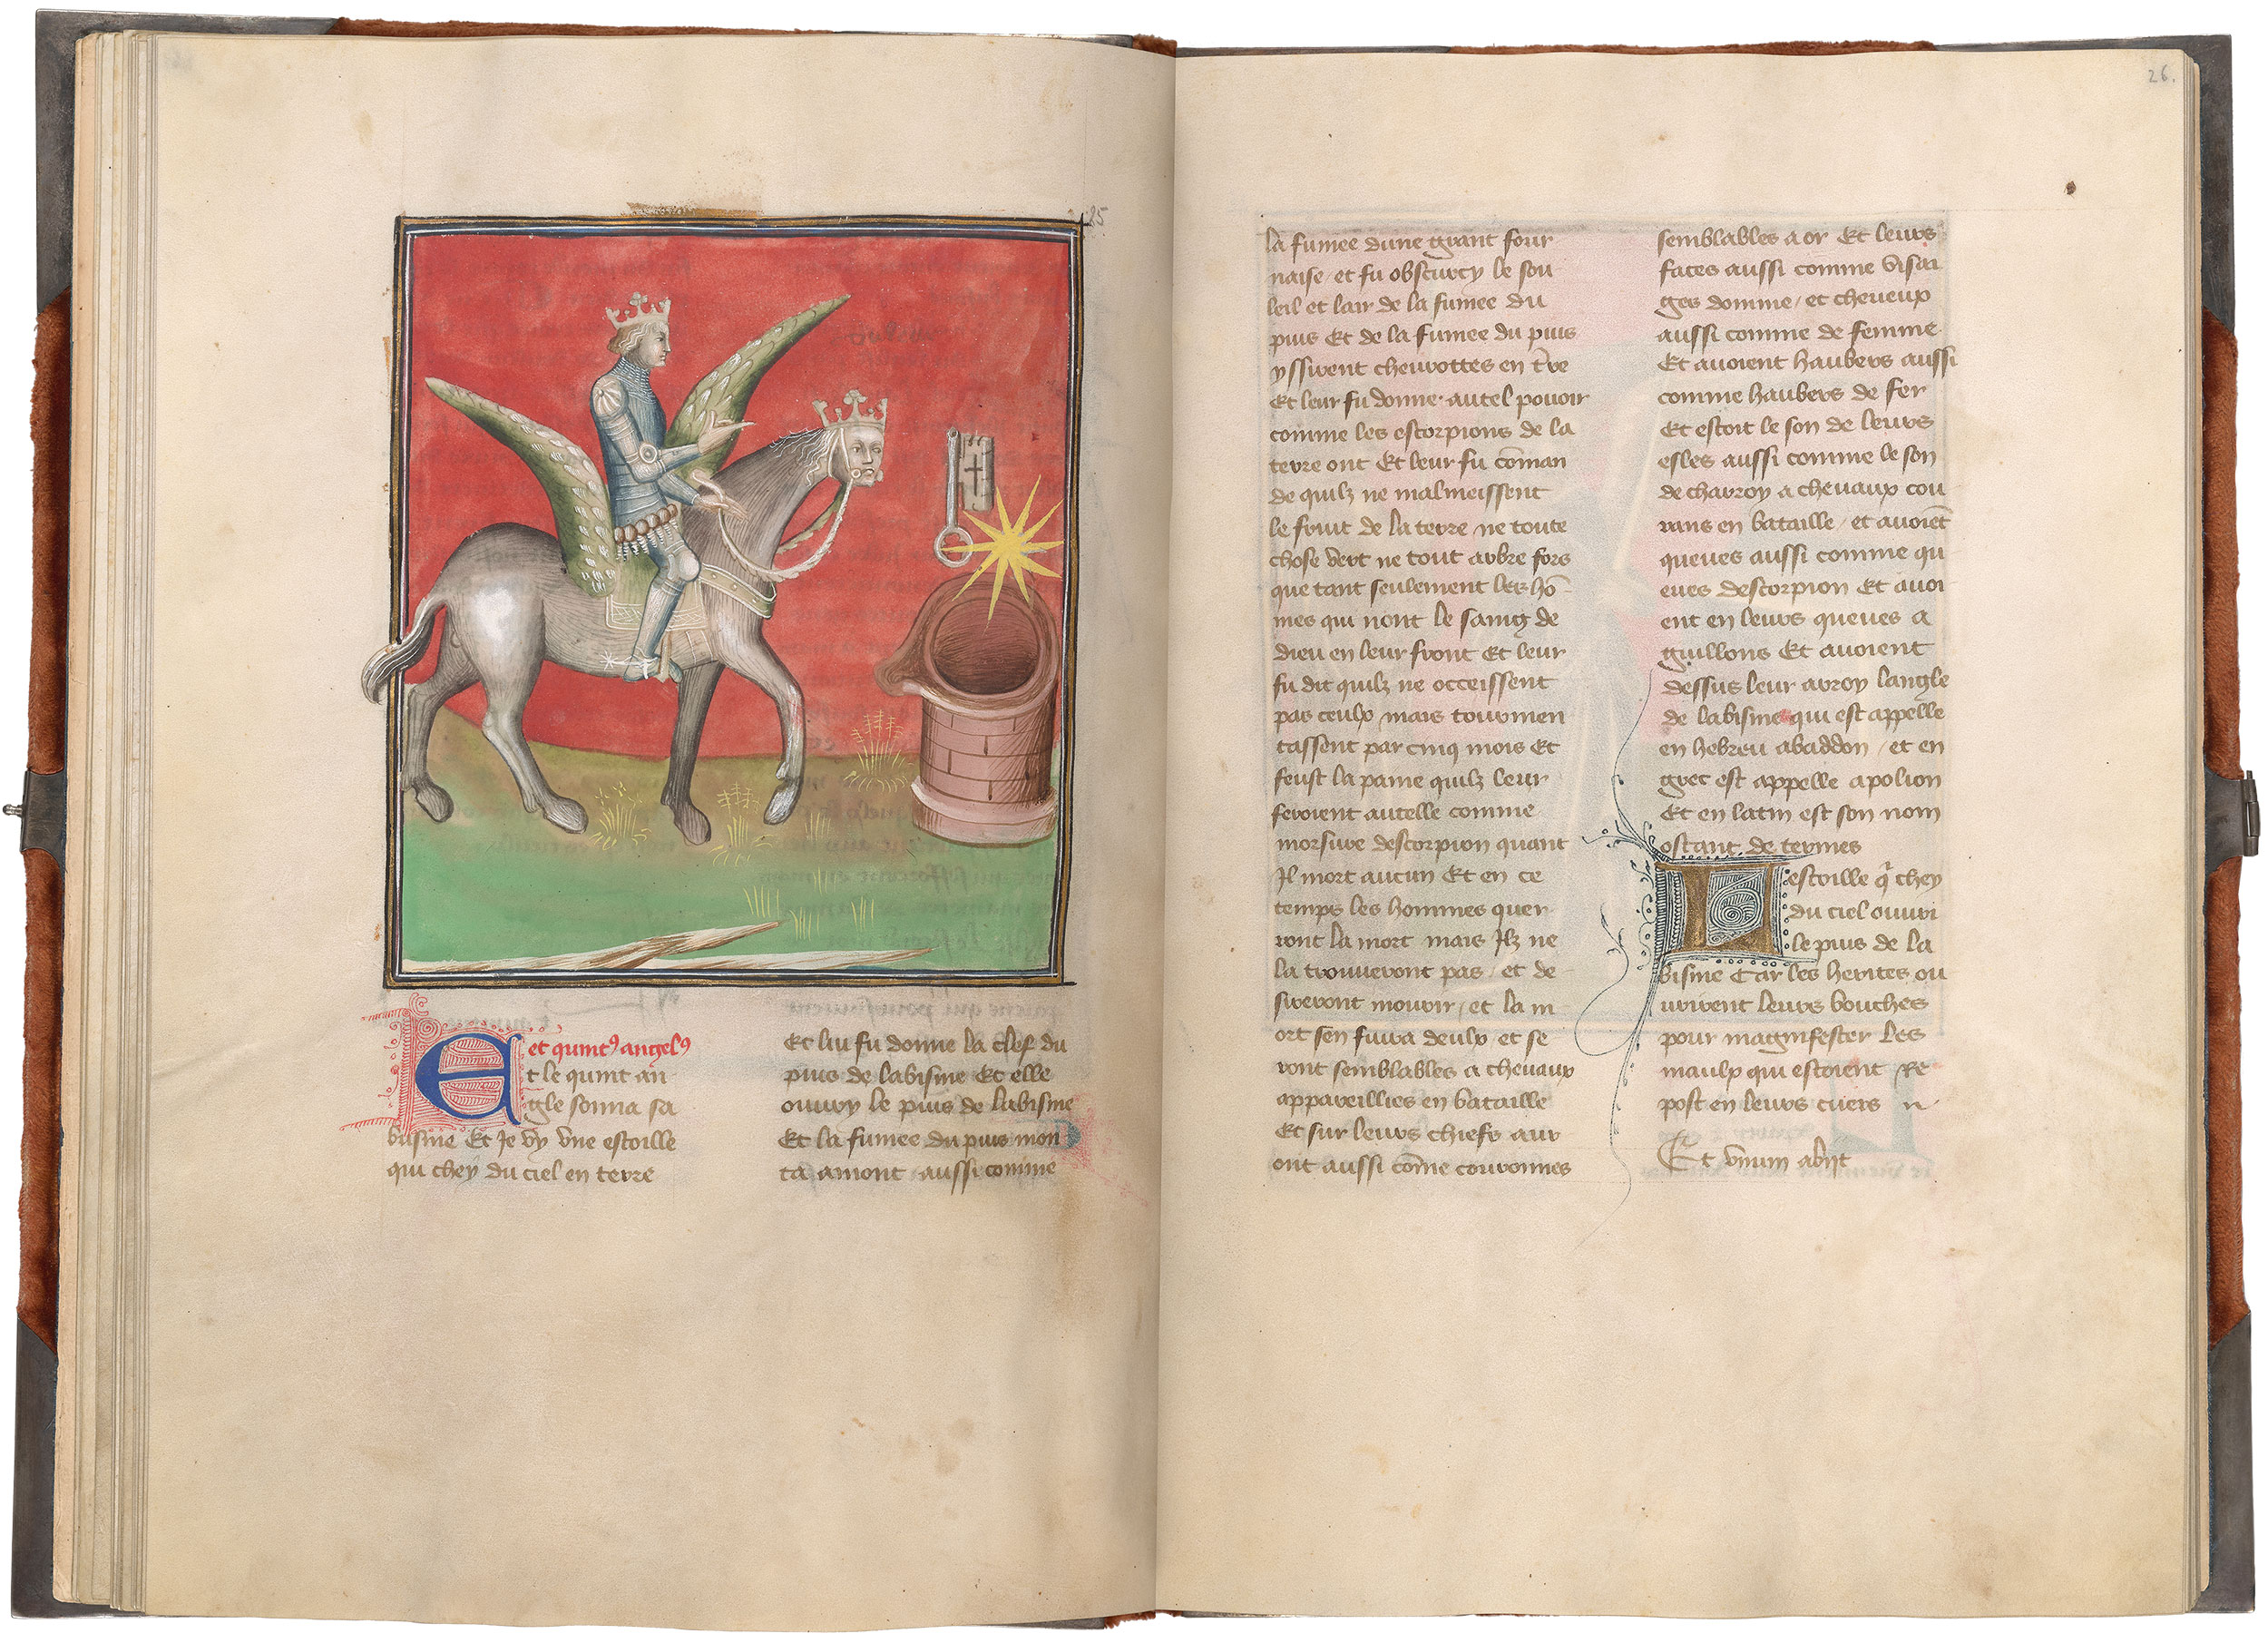 25
et quint9 angel9
Et le quint an
gle sonna sa
busine Et Je vy vne estoille
qui chey du ciel en terre
Et luy fu donne la clef du
puis de labisme Et elle
ouury le puis de labisme
Et la fumee du puis mon
ta amont aussi comme
26.
la fumee dune grant four
naise / et fu obscurcy le sou
leil et lair de la fumee du
puis Et de la fumee du puis
yssirent cheurottes en tre
Et leur fu donne autel pouoir
comme les escorpions de la
terre ont Et leur fu coman
de quilz ne malmeissent
le fruit de la terre / ne toute
chose vert ne tout arbre fors
que tant seulement les ho
mes qui nont le saing de
dieu en leur front Et leur
fu dit quilz ne occeissent
pas ceulx mais tourmen
tassent par cinq mois Et
feust la paine quilz leur
feroient autelle comme
morsure descorpion quant
Il mort aucun Et en ce
temps les hommes quer
ront la mort mais Ilz ne
la trouueront pas / et de
sireront mourir / et la m
ort sen fuira deulx et se
ront semblables a cheuaux
appareillies en bataille
Et sur leurs chiefz aur
ont aussi come couronnes
semblables a or Et leurs
faces aussi comme visai
ges domme / et cheueux
aussi comme de femme
Et auoient haubers aussi
comme haubers de fer
Et estoit le son de leurs
esles aussi comme le son
de charroy a cheuaux cou
rans en bataille / et auoiet
queues aussi comme qu
eues descorpion Et auoi
ent en leurs queues a
guillons Et auoient
dessus leur arroy langle
de labisme qui est appelle
en hebreu abaddon / et en
grec est appelle apolion
Et en latin est son nom
ostant de termes
Lestoille q chey
du ciel ouuri
le puis de la
bisme Car les herites ou
urirent leurs bouches
pour magnifester les
maulx qui estoient re
post en leurs cuers
Et vnum abijt